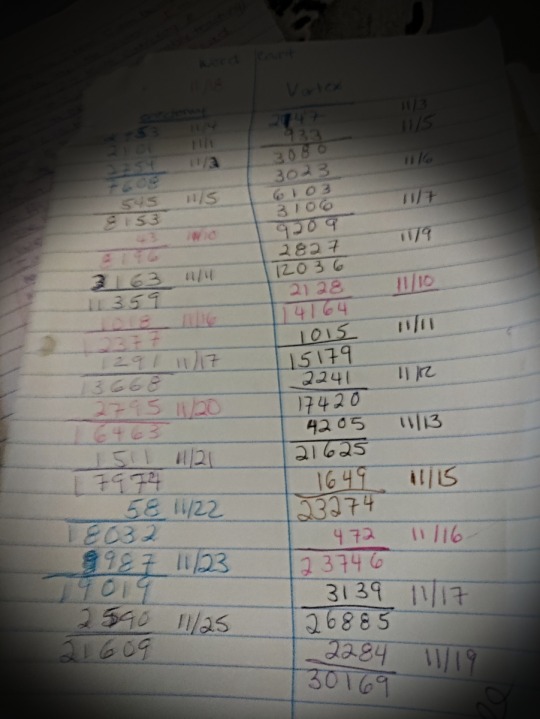 word count
2753 11/4
2101 11/1
2754 11/3
7608
545 11/5
8153
43 11/10
8196
3163 11/4
11359
1018 11/16
12377
1291 11/17
13668
2795 11/20
16463
1511 11/21
17974
58 11/22
18032
987 11/23
19019
2590 11/25
21609
Vortex
2147 11/3
933 11/5
3080
3023 11/6
6103
3106 11/7
9209
2827 11/9
12036
2128 11/10
14164
1015 11/11
15179
2241 11/12
17420
4205 11/13
21625
1649 11/15
23274
472 11/16
23746
3139 11/17
26885
2284 11/19
30169